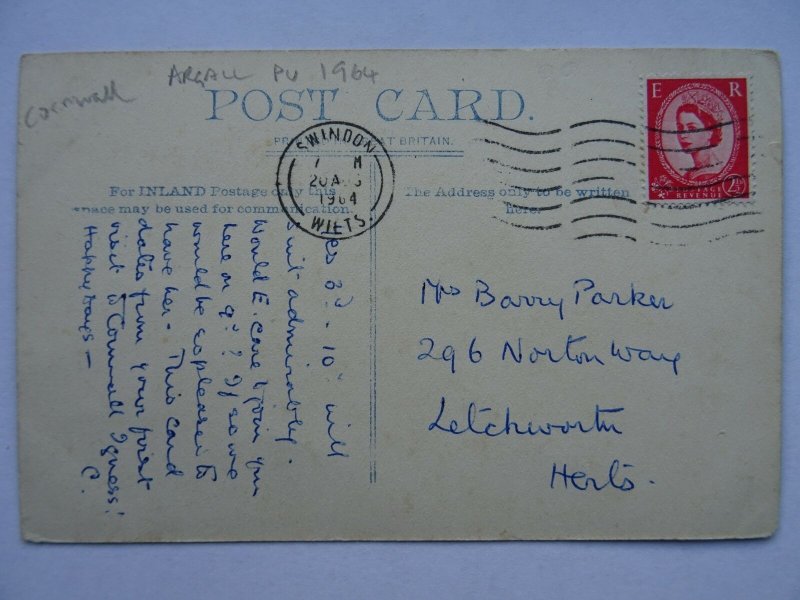 Cornwall
ARGALL PU 1964
POST CARD.
For INLAND Postage only this
space may be used for communication.
The Address only to be written
here.
SWINDON
1964
WILTS.
E R
POSTAGE
REVENUE
2½
3rd - 10th will
suit admirably.
Would E. care to join you
here on 9th? If so we
would be so pleased to
have her - This card
dates from your first
visit to Cornwall I guess!
Happy days - C.
Mrs Barry Parker
296 Norton Way
Letchworth
Herts.